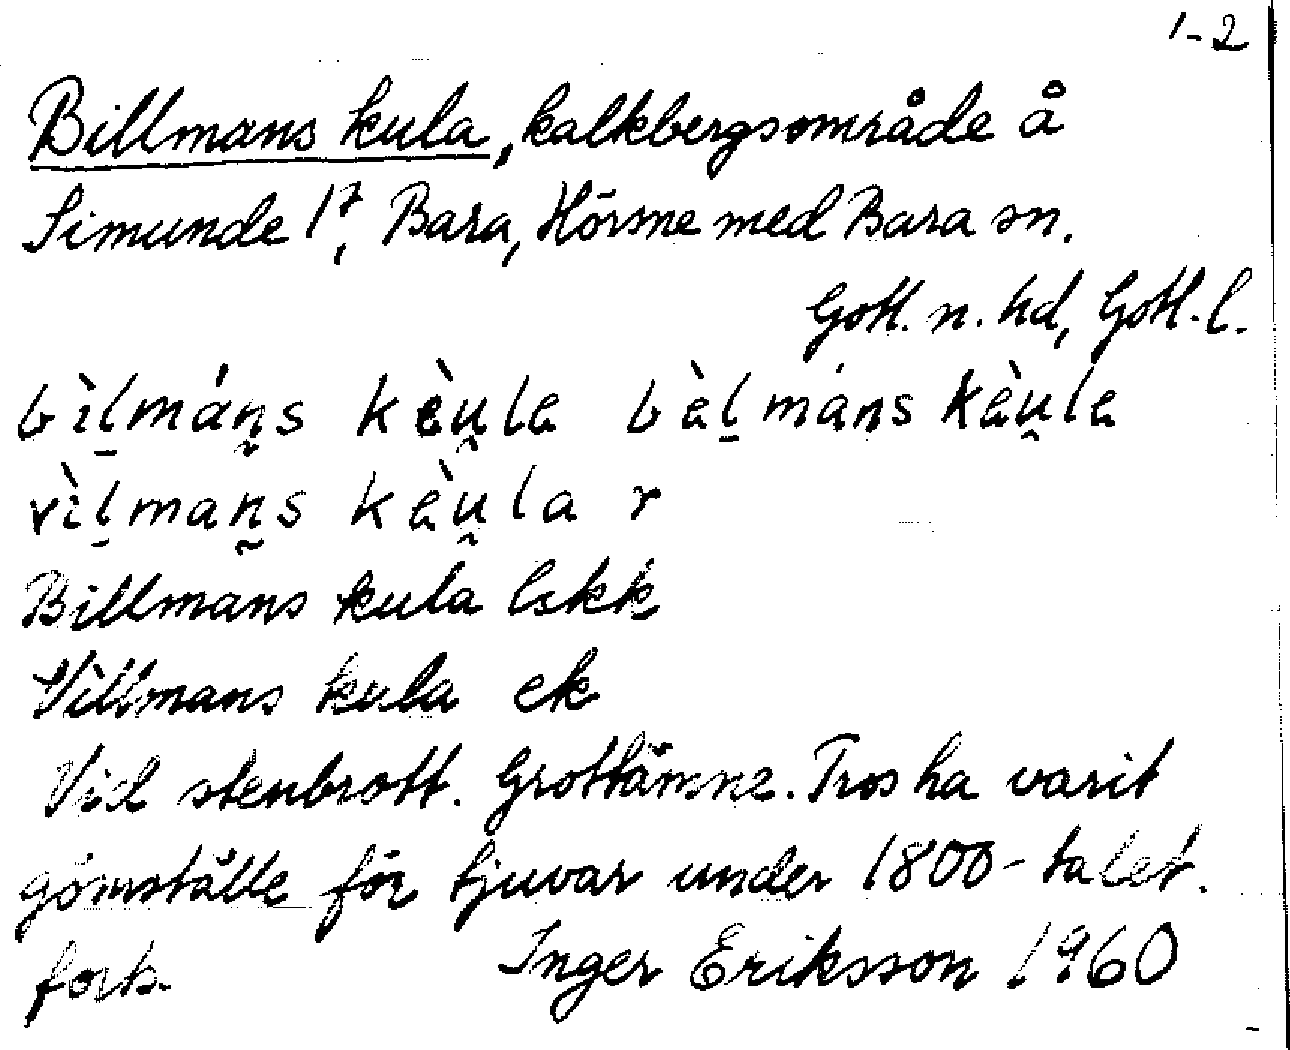 1-2
Billmans kula, kalkbergsområde å
Simunde 1⁷, Bara, Hörsne med Bara sn.
Gotl. n. hd, Gotl. l.
bìl̠mán̰s kèṵla bèl̠máns kèṵla
vìl̠man̰s kèṵla r
Billmans kula lskk
Villmans kula ek
Vid stenbrott. Grottämne. Tros ha varit
gömställe för tjuvar under 1800-talet.
forts. Inger Eriksson 1960